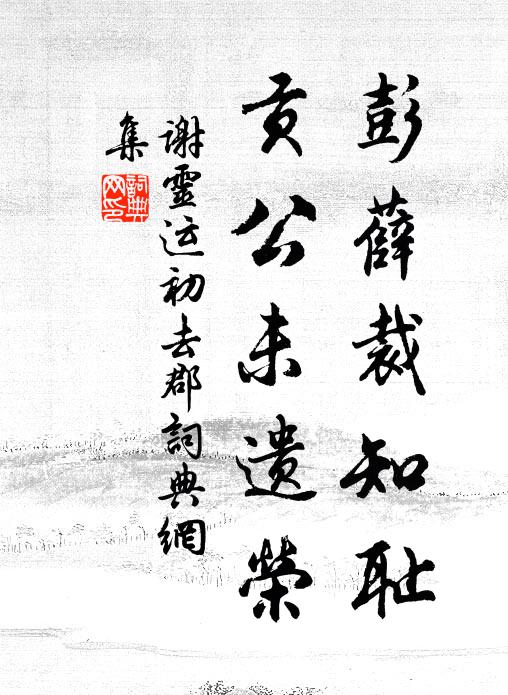 彭薛裁知耻
贡公未遗荣
谢灵运初去郡詞典網
集
詞典
网印